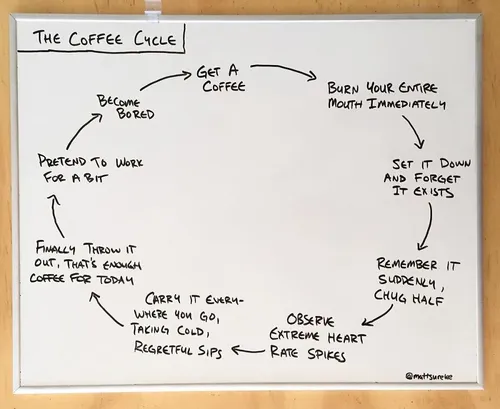 THE COFFEE CYCLE
GET A
COFFEE
BURN YOUR ENTIRE
MOUTH IMMEDIATELY
SET IT DOWN
AND FORGET
IT EXISTS
REMEMBER IT
SUDDENLY,
CHUG HALF
OBSERVE
EXTREME HEART
RATE SPIKES
CARRY IT EVERY-
WHERE YOU GO,
TAKING COLD,
REGRETFUL SIPS
FINALLY THROW IT
OUT, THAT'S ENOUGH
COFFEE FOR TODAY
PRETEND TO WORK
FOR A BIT
BECOME
BORED
@mattsurelee